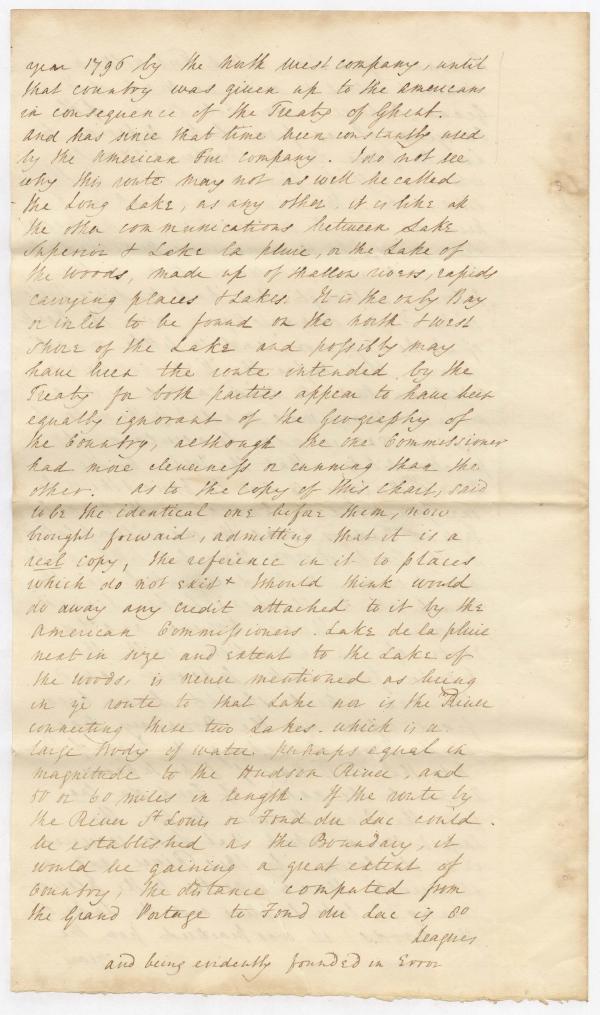 year 1796 by the North West company, until
that country was given up to the Americans
in consequence of the Treaty of Ghent.
and has since that time been constantly used
by the American Fur Company. I do not see
why this route may not as well be called
the Long Lake, as any other. it is like all
the other communications between Lake
Superior & Lake la pluie, or the Lake of
the Woods, made up of shallow rivers, rapids
carrying places & Lakes. It is the only Bay
or inlet to be found on the north & west
Shore of the Lake and possibly may
have been the route intended by the
Treaty for both parties appear to have been
equally ignorant of the Geography of
the Country, although the one Commissioner
had more cleverness or cunning than the
other. As to the Copy of this Chart, said
to be the identical one before them, now
brought forward, admitting that it is a
real copy, the reference in it to places
which do not exist + I should think would
do away any credit attached to it by the
American Commissioners. Lake de la pluie
next in size and extent to the Lake of
the Woods, is never mentioned as being
in ye route to that Lake nor is the River
connecting these two Lakes. which is a
large Body of water, perhaps equal in
magnitude to the Hudson River, and
50 or 60 miles in length. If the route by
the River St Louis or Fond du Lac could
be established as the Boundary, it
would be gaining a great extent of
Country, the distance computed from
the Grand Portage to Fond du Lac is 80
Leagues
and being evidently founded in Error